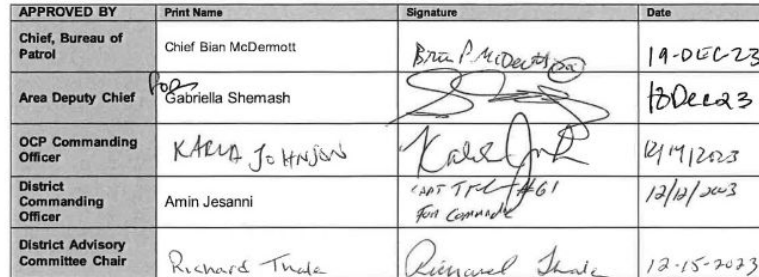 APPROVED BY Print Name Signature Date
Chief, Bureau of Patrol Chief Bian McDermott Brian P. McDermott 19-DEC-23
Area Deputy Chief For Gabriella Shemash 18Dec23
OCP Commanding Officer KARLA JOHNSON Karla
District Commanding Officer Amin Jesanni CAPT #61 For Commander 12/12/2023
District Advisory Committee Chair Richard Thale Richard Thale 12-15-2023